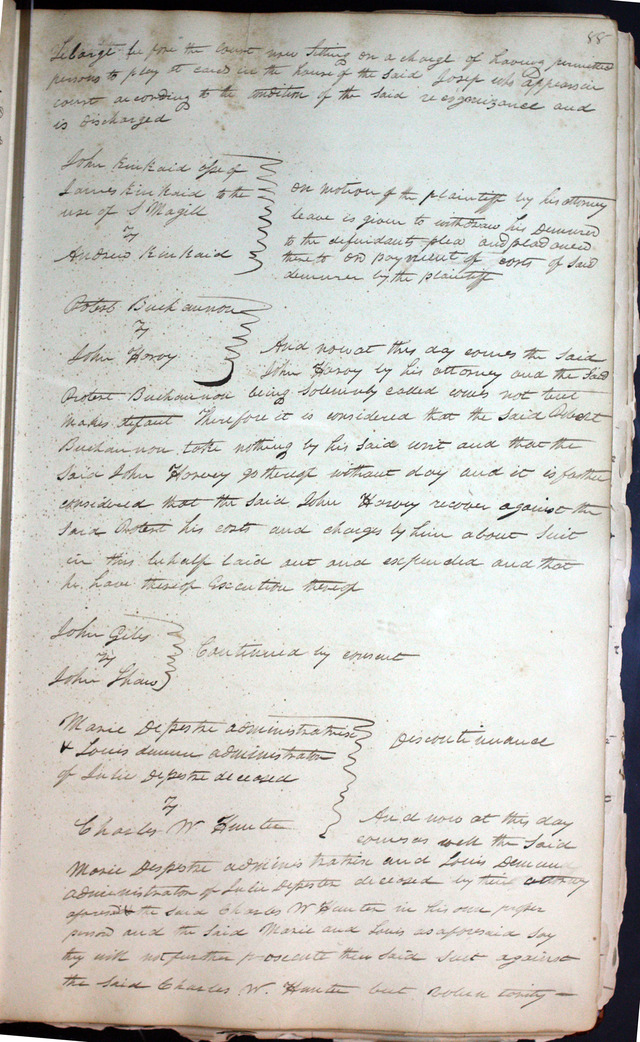 88
Lebarge before the court now sitting on a charge of having permitted
persons to play at cards in the house of the said Josep who appears in
court according to the condition of the said recognizance and
is discharged
John Kinkaid assee of
James Kinkaid to the
use of S Magill
vs
Andrew Kinkaid
on motion of the plaintiff by his attorney
leave is given to withdraw his Demurrer
to the defendants plea and plead anew
thereto on payment of costs of said
demurrer by the plaintiff
Robert Buchannon
vs
John Harvy
And now at this day comes the said
John Harvy by his attorney and the said
Robert Buchannon being Solemnly called comes not but
makes default Therefore it is considered that the said Robert
Buchannon take nothing by his said writ and that the
said John Harvey go thereof without day and it is farther
considered that the said John Harvey recover against the
said Robert his costs and charges by him about Suit
in this behalf laid out and expended and that
he have thereof Execution thereof
John Giles
vs
John Shaw
Continued by consent
Marie Depestre administratrix
& Louis administrator
of Julie Depestre deceased
vs
Charles W Hunter
Discontinuance
And now at this day
comes as well the said
Marie Despestre administratrix and Louis
administrator of Julie Depestre deceased by their attorney
the said Charles W Hunter in his own proper
person and the said Marie and Louis as aforesaid say
they will not further prosecute their said suit against
the said Charles W. Hunter but volun tarily